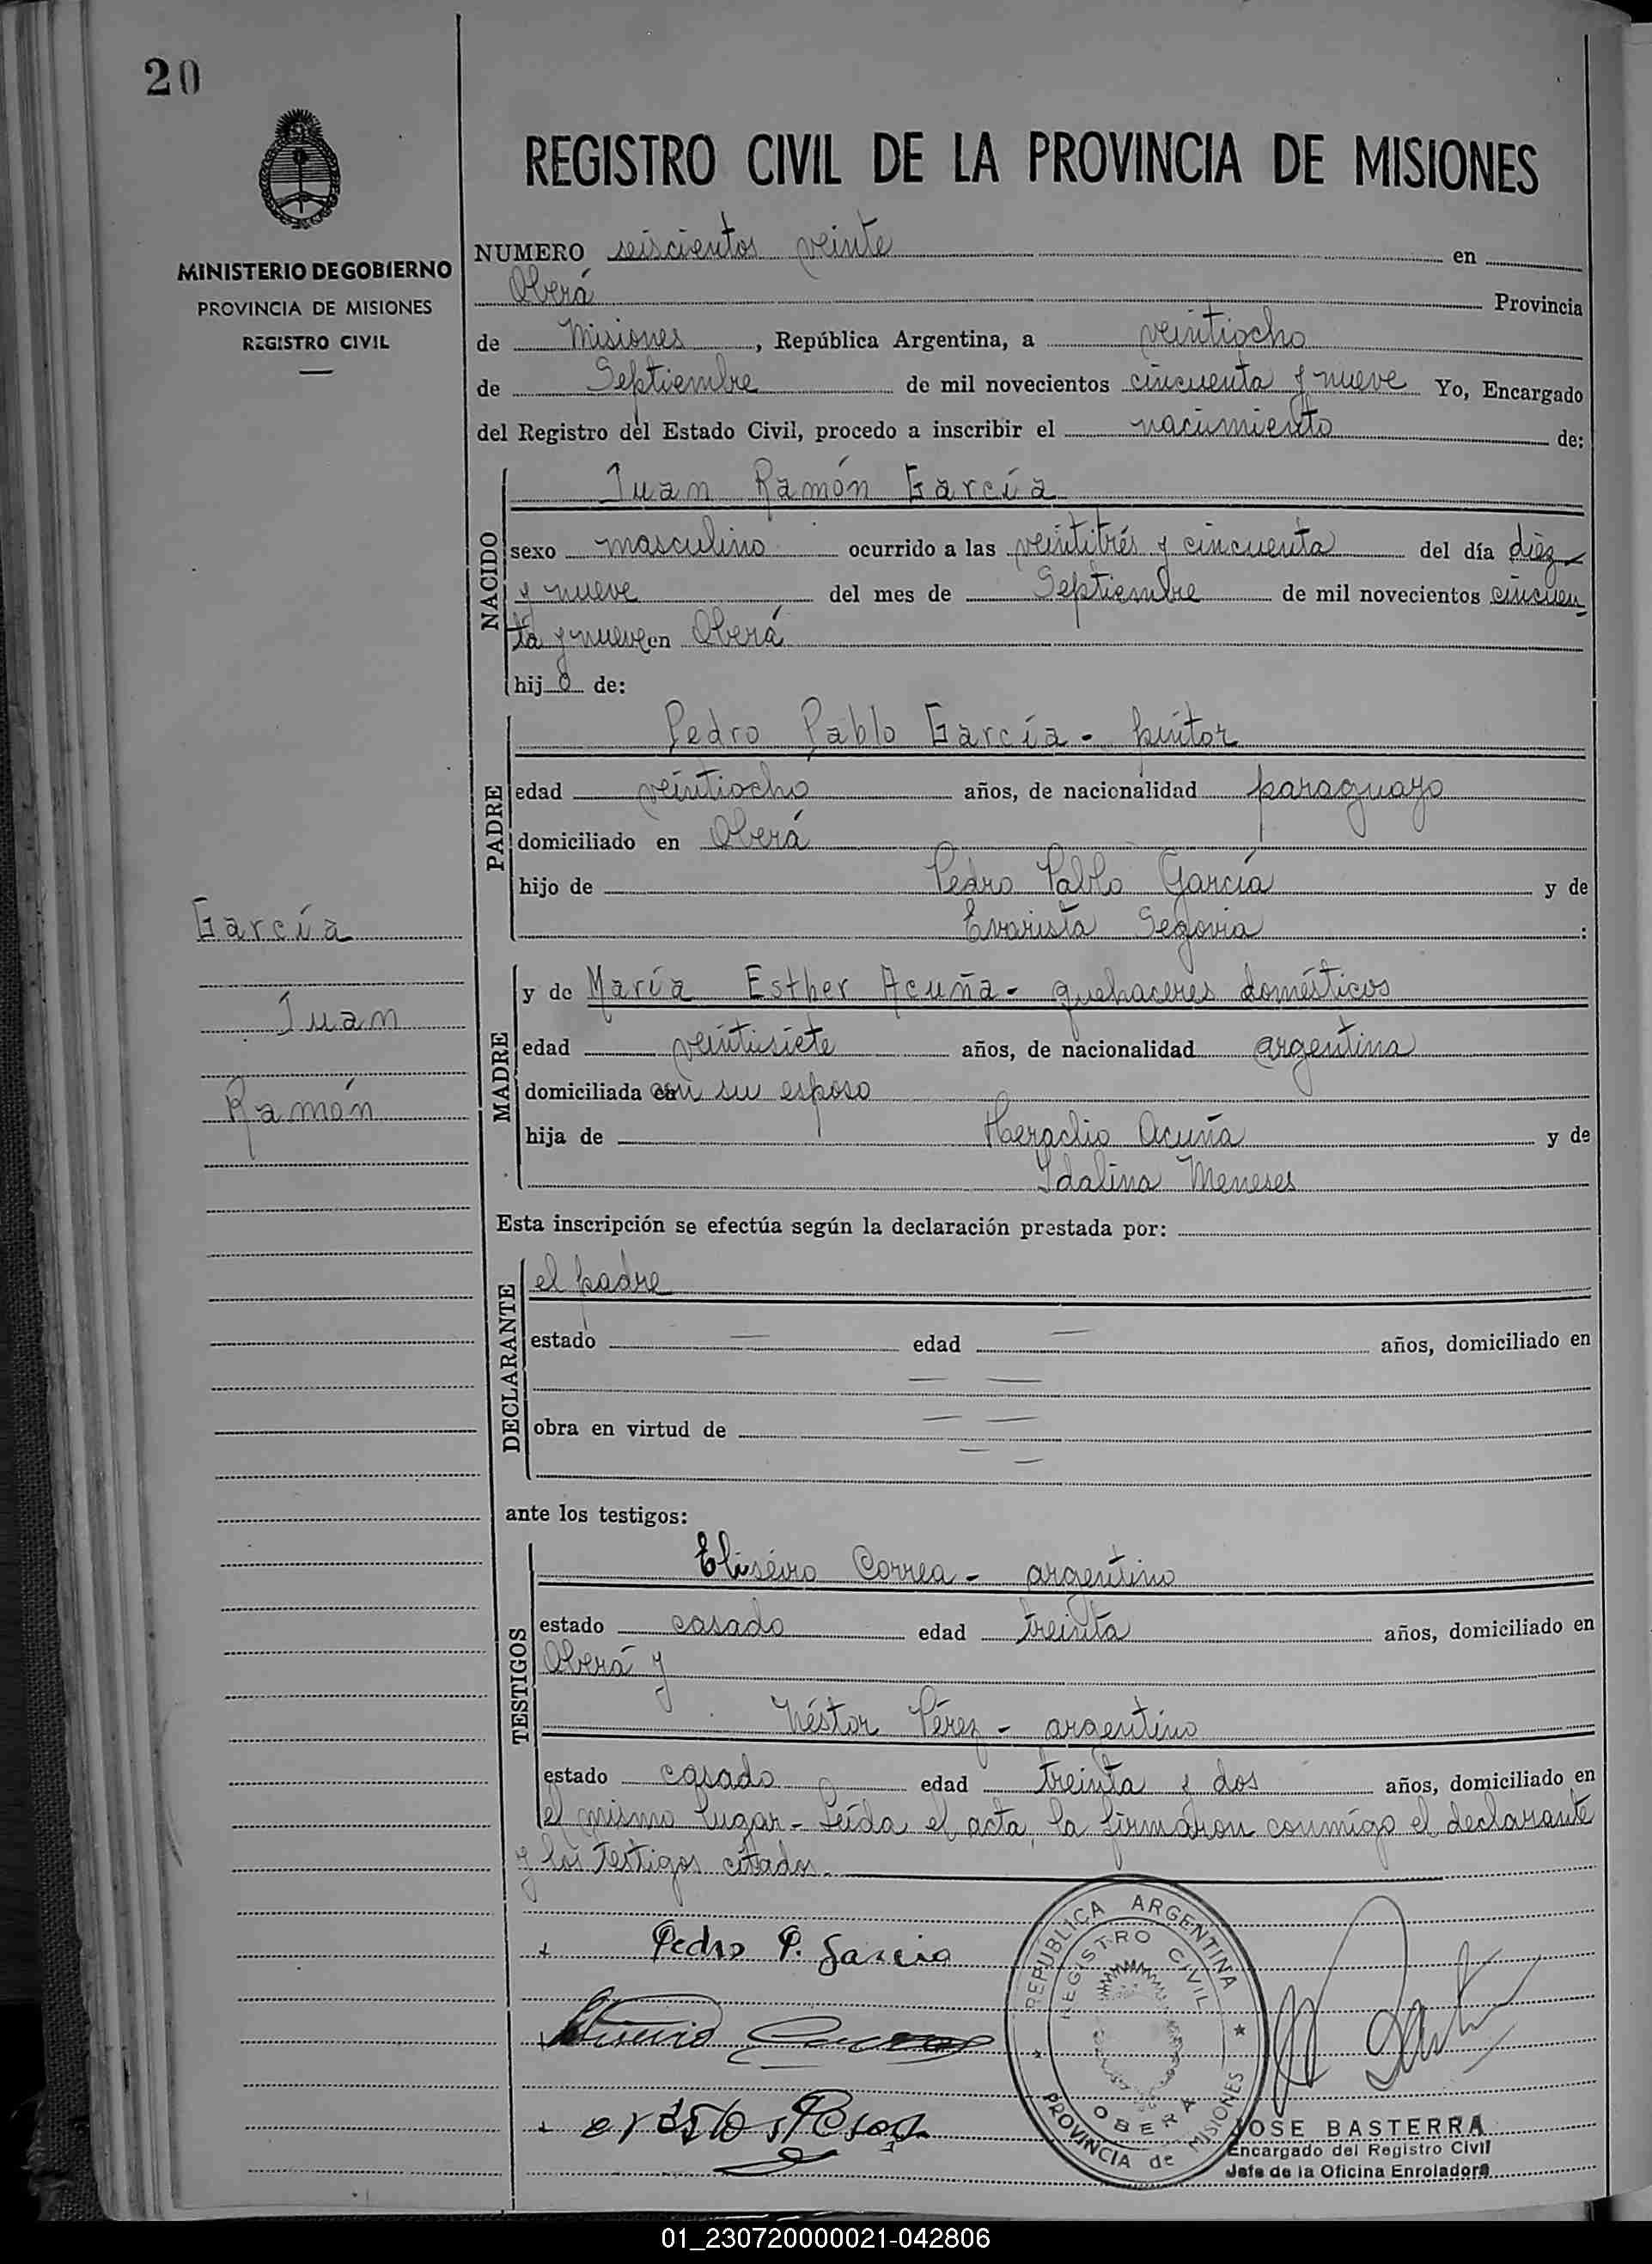 20
MINISTERIO DE GOBIERNO
PROVINCIA DE MISIONES
REGISTRO CIVIL
García
Juan
Ramón
REGISTRO CIVIL DE LA PROVINCIA DE MISIONES
NUMERO seiscientos veinte en
Oberá Provincia
de Misiones, República Argentina, a veintiocho
de Septiembre de mil novecientos cincuenta y nueve Yo, Encargado
del Registro del Estado Civil, procedo a inscribir el nacimiento de:
NACIDO
Juan Ramón García
sexo masculino ocurrido a las veintitrés y cincuenta del día diez
y nueve del mes de Septiembre de mil novecientos cincuen
ta y nueve en Oberá
hijo de:
PADRE
Pedro Pablo García - pintor
edad veintiocho años, de nacionalidad paraguayo
domiciliado en Oberá
hijo de Pedro Pablo García y de
Evarista Segovia :
MADRE
y de María Esther Acuña - quehaceres domésticos
edad veintisiete años, de nacionalidad argentina
domiciliada con su esposo
hija de Heraclio Acuña y de
Idalina Meneses
Esta inscripción se efectúa según la declaración prestada por:
DECLARANTE
el padre
estado — edad — años, domiciliado en
— —
obra en virtud de — —
— —
ante los testigos:
TESTIGOS
Correa - argentino
estado casado edad treinta años, domiciliado en
Oberá y
Néstor Pérez - argentino
estado casado edad treinta y dos años, domiciliado en
el mismo lugar - Leída el acta, la firmaron conmigo el declarante
y los testigos citados.
+ Pedro P. Garcia
REPUBLICA ARGENTINA
REGISTRO CIVIL
OBERA
PROVINCIA de MISIONES
JOSE BASTERRA
Encargado del Registro Civil
Jefe de la Oficina Enroladora
01_230720000021-042806